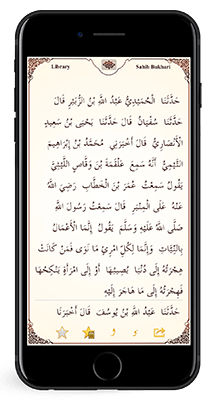 Library Sahih Bukhari
حَدَّثَنَا الْحُمَيْدِيُّ عَبْدُ اللَّهِ بْنُ الزُّبَيْرِ قَالَ
حَدَّثَنَا سُفْيَانُ قَالَ حَدَّثَنَا يَحْيَى بْنُ سَعِيدٍ
الْأَنْصَارِيُّ قَالَ أَخْبَرَنِي مُحَمَّدُ بْنُ إِبْرَاهِيمَ
التَّيْمِيُّ أَنَّهُ سَمِعَ عَلْقَمَةَ بْنَ وَقَّاصٍ اللَّيْثِيَّ
يَقُولُ سَمِعْتُ عُمَرَ بْنَ الْخَطَّابِ رَضِيَ اللَّهُ
عَنْهُ عَلَى الْمِنْبَرِ قَالَ سَمِعْتُ رَسُولَ اللَّهِ
صَلَّى اللَّهُ عَلَيْهِ وَسَلَّمَ يَقُولُ إِنَّمَا الْأَعْمَالُ
بِالنِّيَّاتِ وَإِنَّمَا لِكُلِّ امْرِئٍ مَا نَوَى فَمَنْ كَانَتْ
هِجْرَتُهُ إِلَى دُنْيَا يُصِيبُهَا أَوْ إِلَى امْرَأَةٍ يَنْكِحُهَا
فَهِجْرَتُهُ إِلَى مَا هَاجَرَ إِلَيْهِ
حَدَّثَنَا عَبْدُ اللَّهِ بْنُ يُوسُفَ قَالَ أَخْبَرَنَا